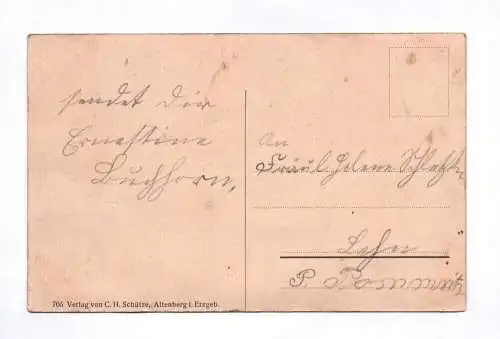 sendet Dir
Ernestine
Buchhorn,
An
Fräul Helene
Lehn
P. Pommritz
704 Verlag von C. H. Schütze, Altenberg i. Erzgeb.